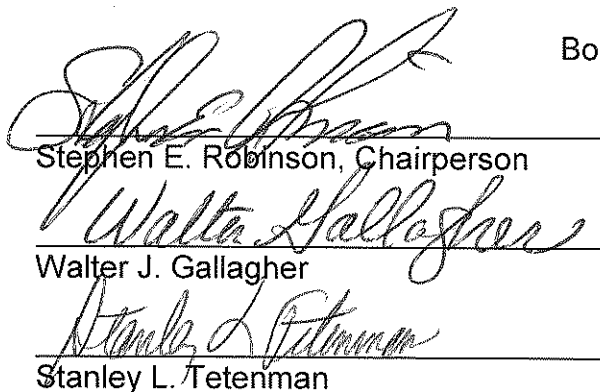 Bo
Stephen E Robinson
Stephen E. Robinson, Chairperson
Walter Gallagher
Walter J. Gallagher
Stanley L Tetenman
Stanley L. Tetenman